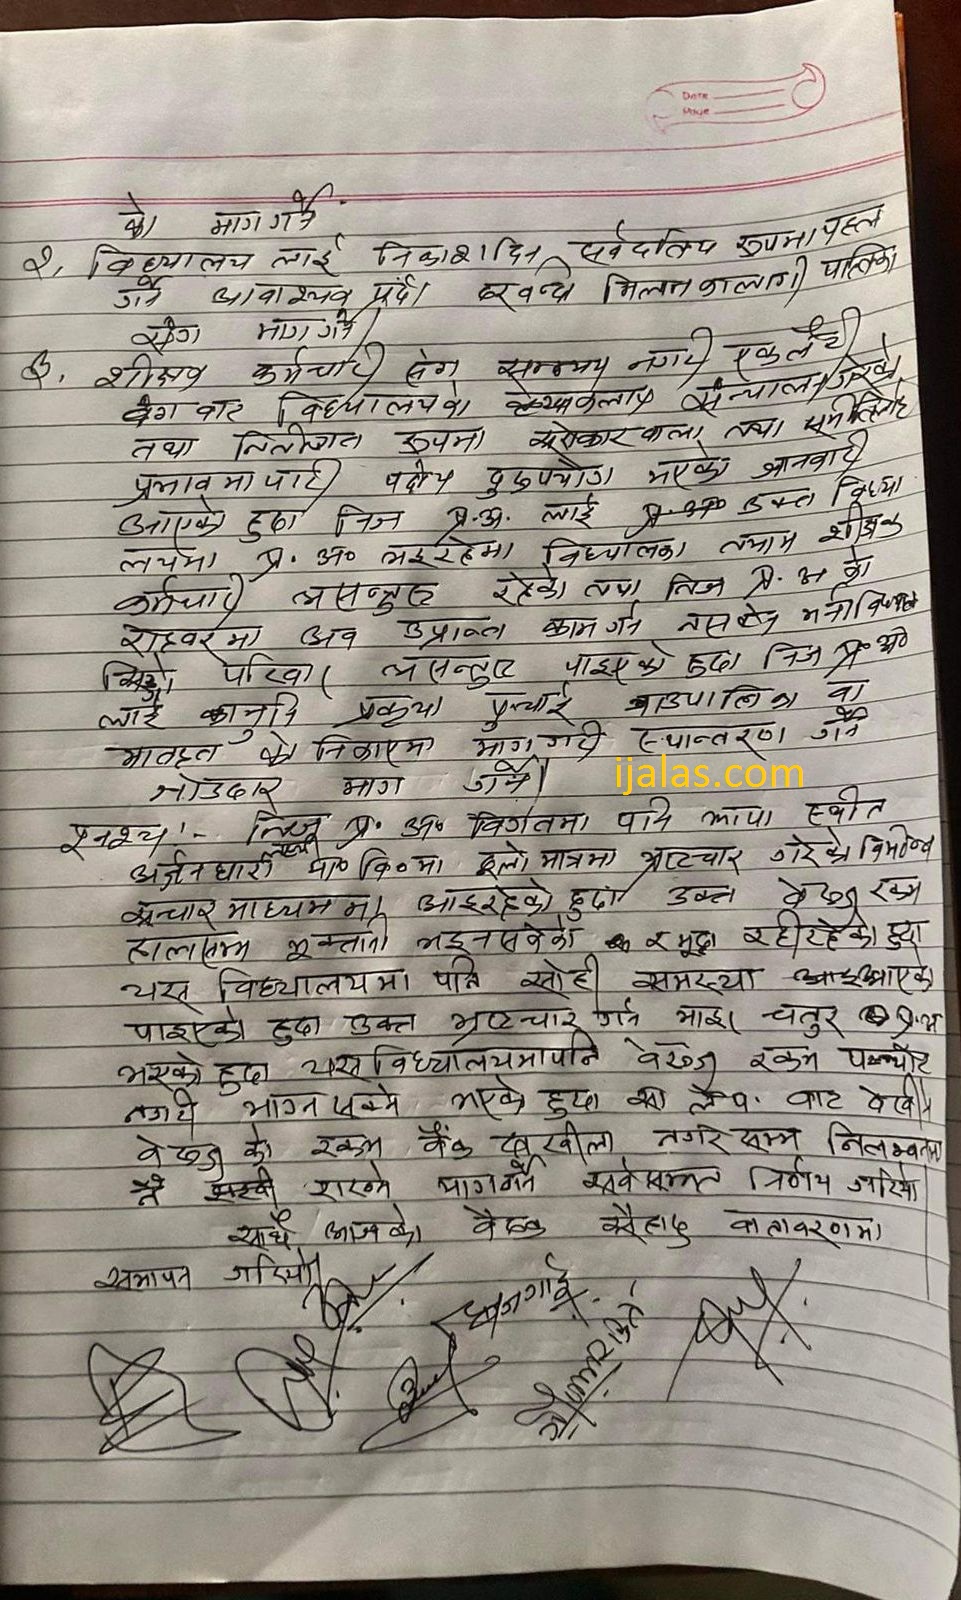 Date
Page
को माग गर्ने.
२. विध्यालय लाई निकाशा दिन सर्वदलिय रूपमा पहल
गर्ने आवाश्यक पर्दा दरवन्दी मिलानकालागी पालिका
सँग माग गर्ने।
३. शीक्षक कर्मचारी सँग समन्वय नगरी एकलौटी
ढंग वाट विध्यालयको संन्चालन गरेको
तथा रूपमा सरोकारवाला तथा
प्रभावमापारी पदीय दुरुपयोग भएको जानकारी
आएको हुदा निज प्र.अ. लाई प्र.अ० उक्त विध्या
लयमा प्र. अ० भइरहेमा विध्यालका तमाम शीक्षक
कर्मचारी असन्तुष्ट रहेको तथा निज प्र. अ को
रोहवरमा अव उप्रान्त काम गर्न नसक्ने
परिवार असन्तुष्ट पाइएको हुदा निज प्र० अ०
लाई कानुनि प्रकृया पुर्‍याई गाउपालिका वा
मातहत को निकाएमा मागगरी स्थान्तरण गर्ने
जोडदार माग गर्ने।
ijalas.com
पुनश्च :- निज प्र. अ० विगतमा पनि झापा स्थीत
अर्जुनधारी मा० वि० मा ठुलो मात्रमा भ्रष्टचार गरेको विभिन्न
सन्चार माध्यममा आइरहेको हुदा उक्त वेरुजु रकम
हालसम्म भुक्तानी भइनसकेको र मुद्दा रहीरहेको हुदा
यस विध्यालयमा पनि सोही समस्या आइआएको
पाइएको हुदा उक्त भ्रष्टचार गर्न माहा चतुर प्र.अ
भएको हुदा यस विध्यालयमापनि वेरुजु रकम
नगरी भाग्न सक्ने भएको हुदा सो लै.प. वाट देखीने
वेरुजु को रकम बैंक दाखीला नगरे सम्म निलम्वनमा
नै राख्ने मागगर्ने सर्वसम्मत निर्णय गरियो
साथै आजको बैठक सौहाद्र वातावरणमा
समापन गरियो।